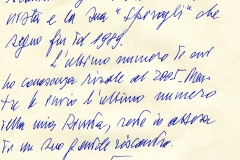 vista e la sua "Spiragli" che
segno fin dal 1989.
L'ultimo numero di cui
ho conoscenza risale al 2005. Men-
tre le invio l'ultimo numero
della mia Rivista, resto in attesa
di un suo gentile riscontro.